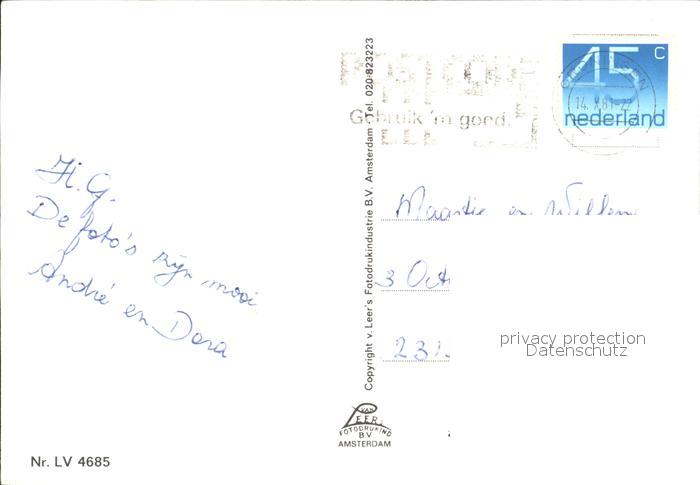 H.G.
De foto's zijn mooi
André en Dora
Nr. LV 4685
Copyright v. Leer's Fotodrukindustrie B.V. Amsterdam Tel. 020-823223
VAN
LEER'S
FOTODRUKIND
B.V
AMSTERDAM
Gebruik 'm goed.
45 c
nederland
14. X 81-22
en Willem
3 Oct
231
privacy protection
Datenschutz